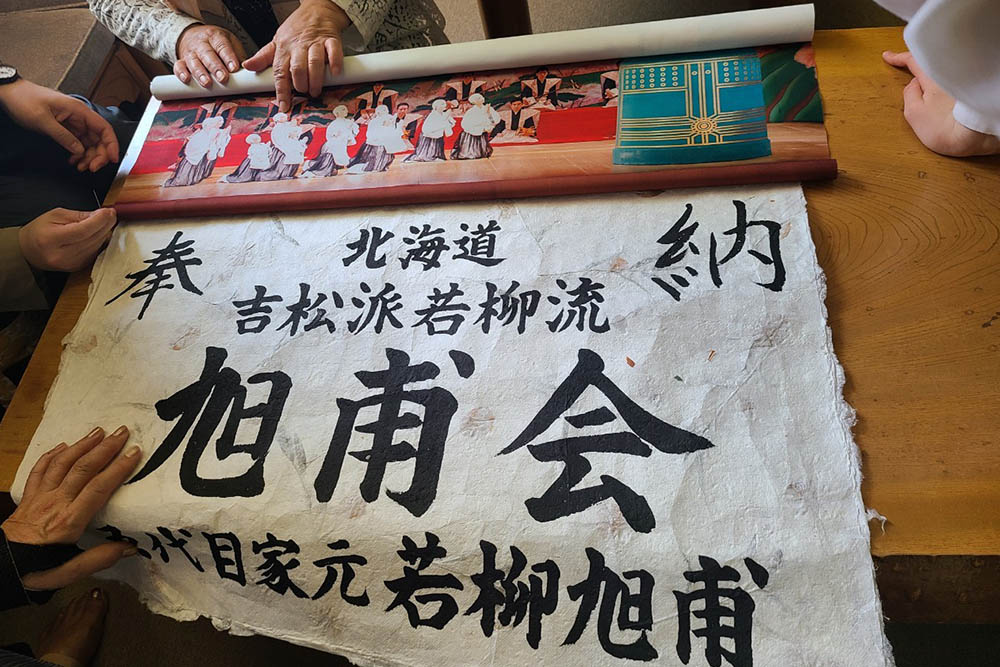 奉納
北海道
吉松派若柳流
旭甫会
代目家元 若柳旭甫